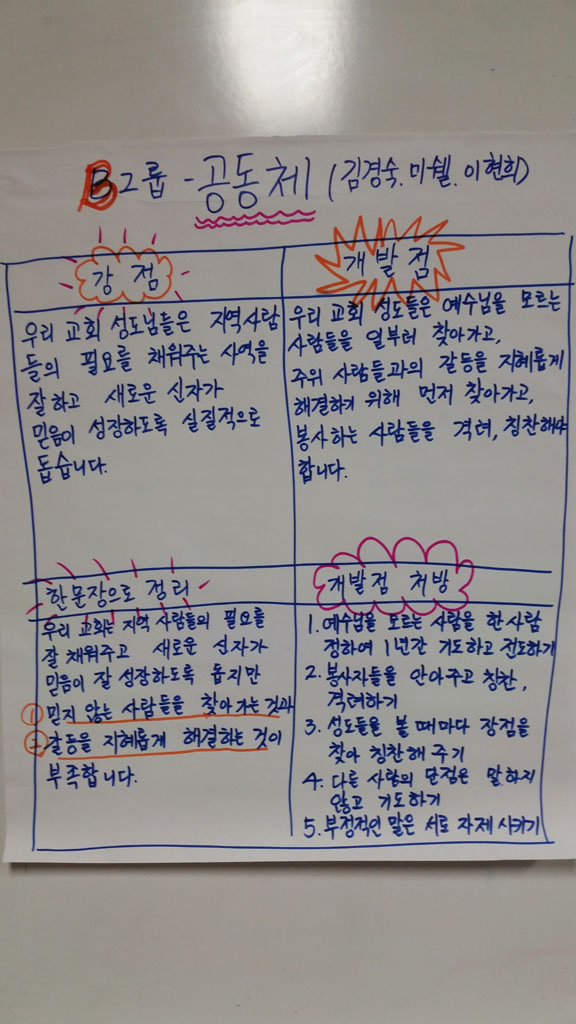 B그룹 - 공동체 (김경숙. 미쉘. 이현희)
강 점
우리 교회 성도님들은 지역사람
들의 필요를 채워주는 사역을
잘하고 새로운 신자가
믿음이 성장하도록 실질적으로
돕습니다.
개발점
우리 교회 성도들은 예수님을 모르는
사람들을 일부러 찾아가고,
주위 사람들과의 갈등을 지혜롭게
해결하기 위해 먼저 찾아가고,
봉사하는 사람들을 격려, 칭찬해야
합니다.
한문장으로 정리
우리 교회는 지역 사람들의 필요를
잘 채워주고 새로운 신자가
믿음이 잘 성장하도록 돕지만
① 믿지 않는 사람들을 찾아가는 것과
② 갈등을 지혜롭게 해결하는 것이
부족합니다.
개발점 처방
1. 예수님을 모르는 사람을 한 사람
정하여 1년간 기도하고 전도하기
2. 봉사자들을 안아주고 칭찬,
격려하기
3. 성도들을 볼 때마다 장점을
찾아 칭찬해 주기
4. 다른 사람의 단점은 말하지
않고 기도하기
5. 부정적인 말은 서로 자제시키기